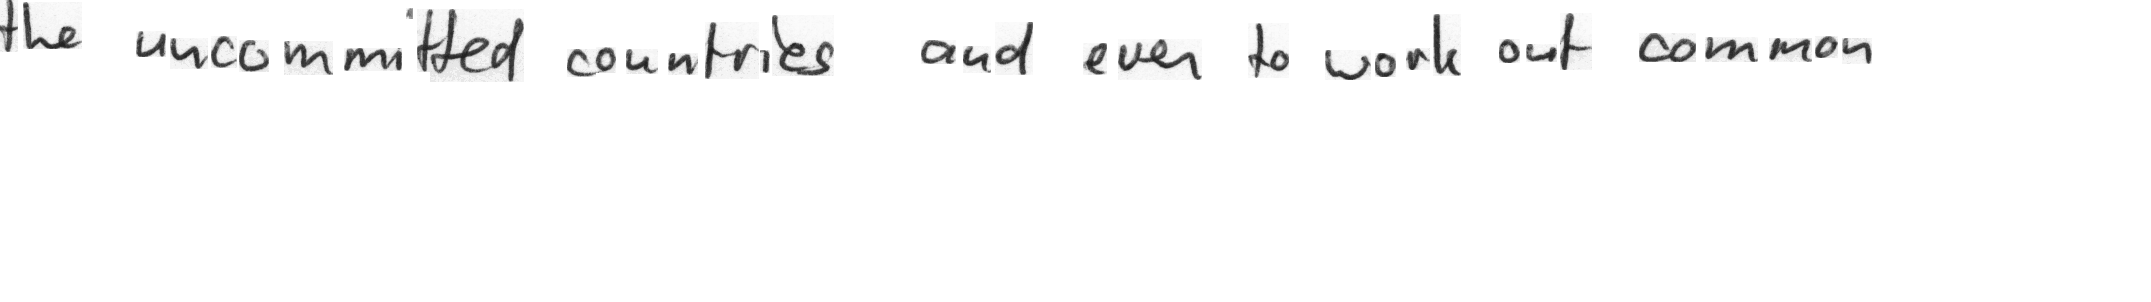 the uncommitted countries and even to work out common